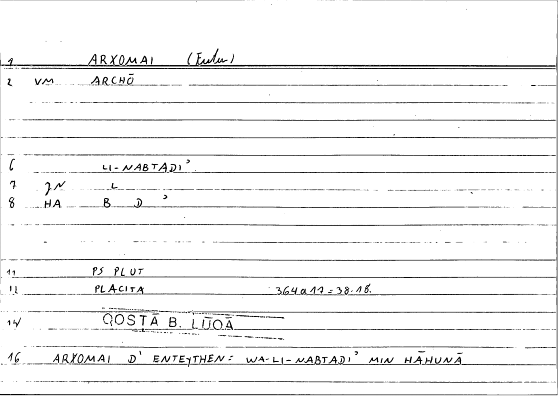 1 ARXOMAI
2 VM ARCHŌ
6 LI-NABTADIʾ
7 JN L
8 HA B D ʾ
11 PS PLUT
12 PLACITA 364a17 = 38.18.
14 QOSṬĀ B. LŪQĀ
16 ARXOMAI D' ENTEYTHEN: WA-LI-NABTADIʾ MIN HĀHUNĀ